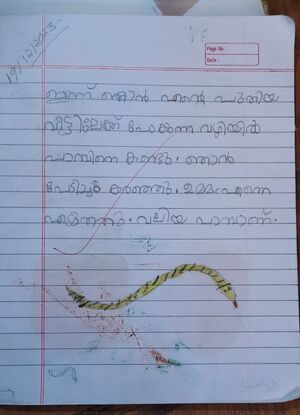 19/12/2023-
Page No :
Date :
ഇന്ന് ഞാൻ എന്റെ പുതിയ
വീട്ടിലേക്ക് പോകുന്ന വഴിയിൽ
പാമ്പിനെ കണ്ടു. ഞാൻ
പേടിച്ച് കരഞ്ഞു. ഉമ്മ എന്നെ
എടുത്തു. വലിയ പാമ്പാണ്.